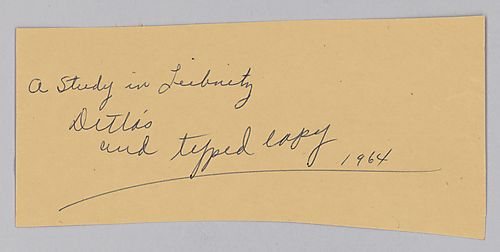 A Study in Leibnitz
Detlás
and typed copy
1964